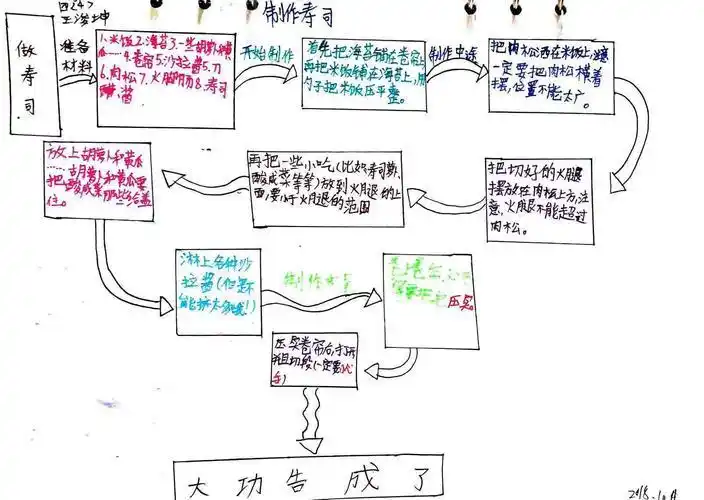 四(4)
王浚坤
制作寿司
做寿司
准备
材料
1.米饭2.海苔3.一些胡萝卜黄
4.卷帘5.沙拉酱5.刀
6.肉松7.火腿肠8.寿司
酱
开始制作
首先把海苔铺在卷帘上
再把米饭铺在海苔上,用
勺子把米饭压平整。
制作中途
把肉松洒在米饭上,注意
一定要把肉松横着
摆,位置不能太广。
把切好的火腿
摆放在肉松上方,注
意,火腿不能超过
肉松。
再把一些小吃(比如寿司萝
酸咸菜等等)放到火腿的上
面,要小于火腿的范围
放上胡萝卜和黄瓜
胡萝卜和黄瓜要
把酸咸菜那些给盖
住。
淋上各种沙
拉酱(但是不
能挤太多哦!)
制作
压实。
压实卷帘后,打开
并且切段(一定要
大功告成了
2018.10.